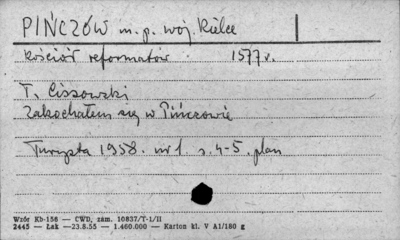 PIŃCZÓW m. p. woj. Kielce
Kościół reformatów 1577 r.
T. Cissowski
Zakochałem się w Pińczowie
Turysta 1958. nr 1. s. 4-5. plan
Wzór Kb-158 — CWD, zam. 10837/T-1/II
2445 — Łsk —23.8.55 — 1.460.000 — Karton kl. V A1/180 g